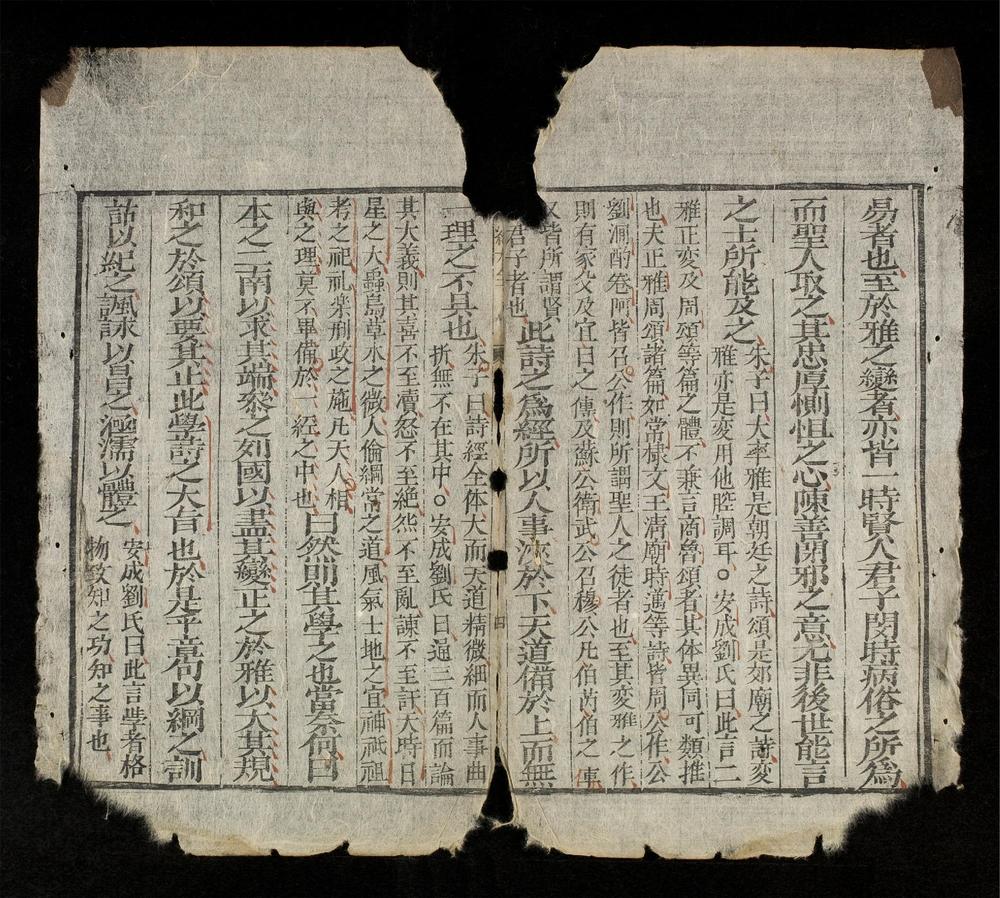 易者也至於雅之變者亦皆一時賢人君子閔時病俗之所為
而聖人取之其忠厚惻怛之心陳善閉邪之意尤非後世能言
之士所能及之
朱子曰大率雅是朝廷之詩頌是郊廟之詩変
雅亦是変用他腔調耳○安成劉氏曰此言二
雅正変及周頌等篇之體不兼言商魯頌者其体異同可類推
也夫正雅周頌諸篇如常棣文王清廟時邁等詩皆周公作公
劉泂酌卷阿皆召公作則所謂聖人之徒者也至其変雅之作
則有家父及宜臼之傳及蘇公衛武公召穆公凡伯芮伯之
又皆所謂賢
君子者也
此詩之為經所以人事浹於下天道備於上而無
一理之不具也
朱子曰詩經全体大而天道精微細而人事曲
折無不在其中○安成劉氏曰通三百篇而論
其大義則其喜不至瀆怒不至絶怨不至亂諫不至訐天時日
星之大蟲鳥草木之微人倫綱常之道風氣土地之宜神祇祖
考之祀礼楽刑政之施凡天人相
與之理莫不畢備於一経之中也
曰然則其學之也當奈何曰
本之二南以求其端參之列國以盡其變正之於雅以大其規
和之於頌以要其止此學詩之大旨也於是乎章句以綱之訓
詁以紀之諷詠以昌之涵濡以體之
安成劉氏曰此言学者格
物致知之功知之事也